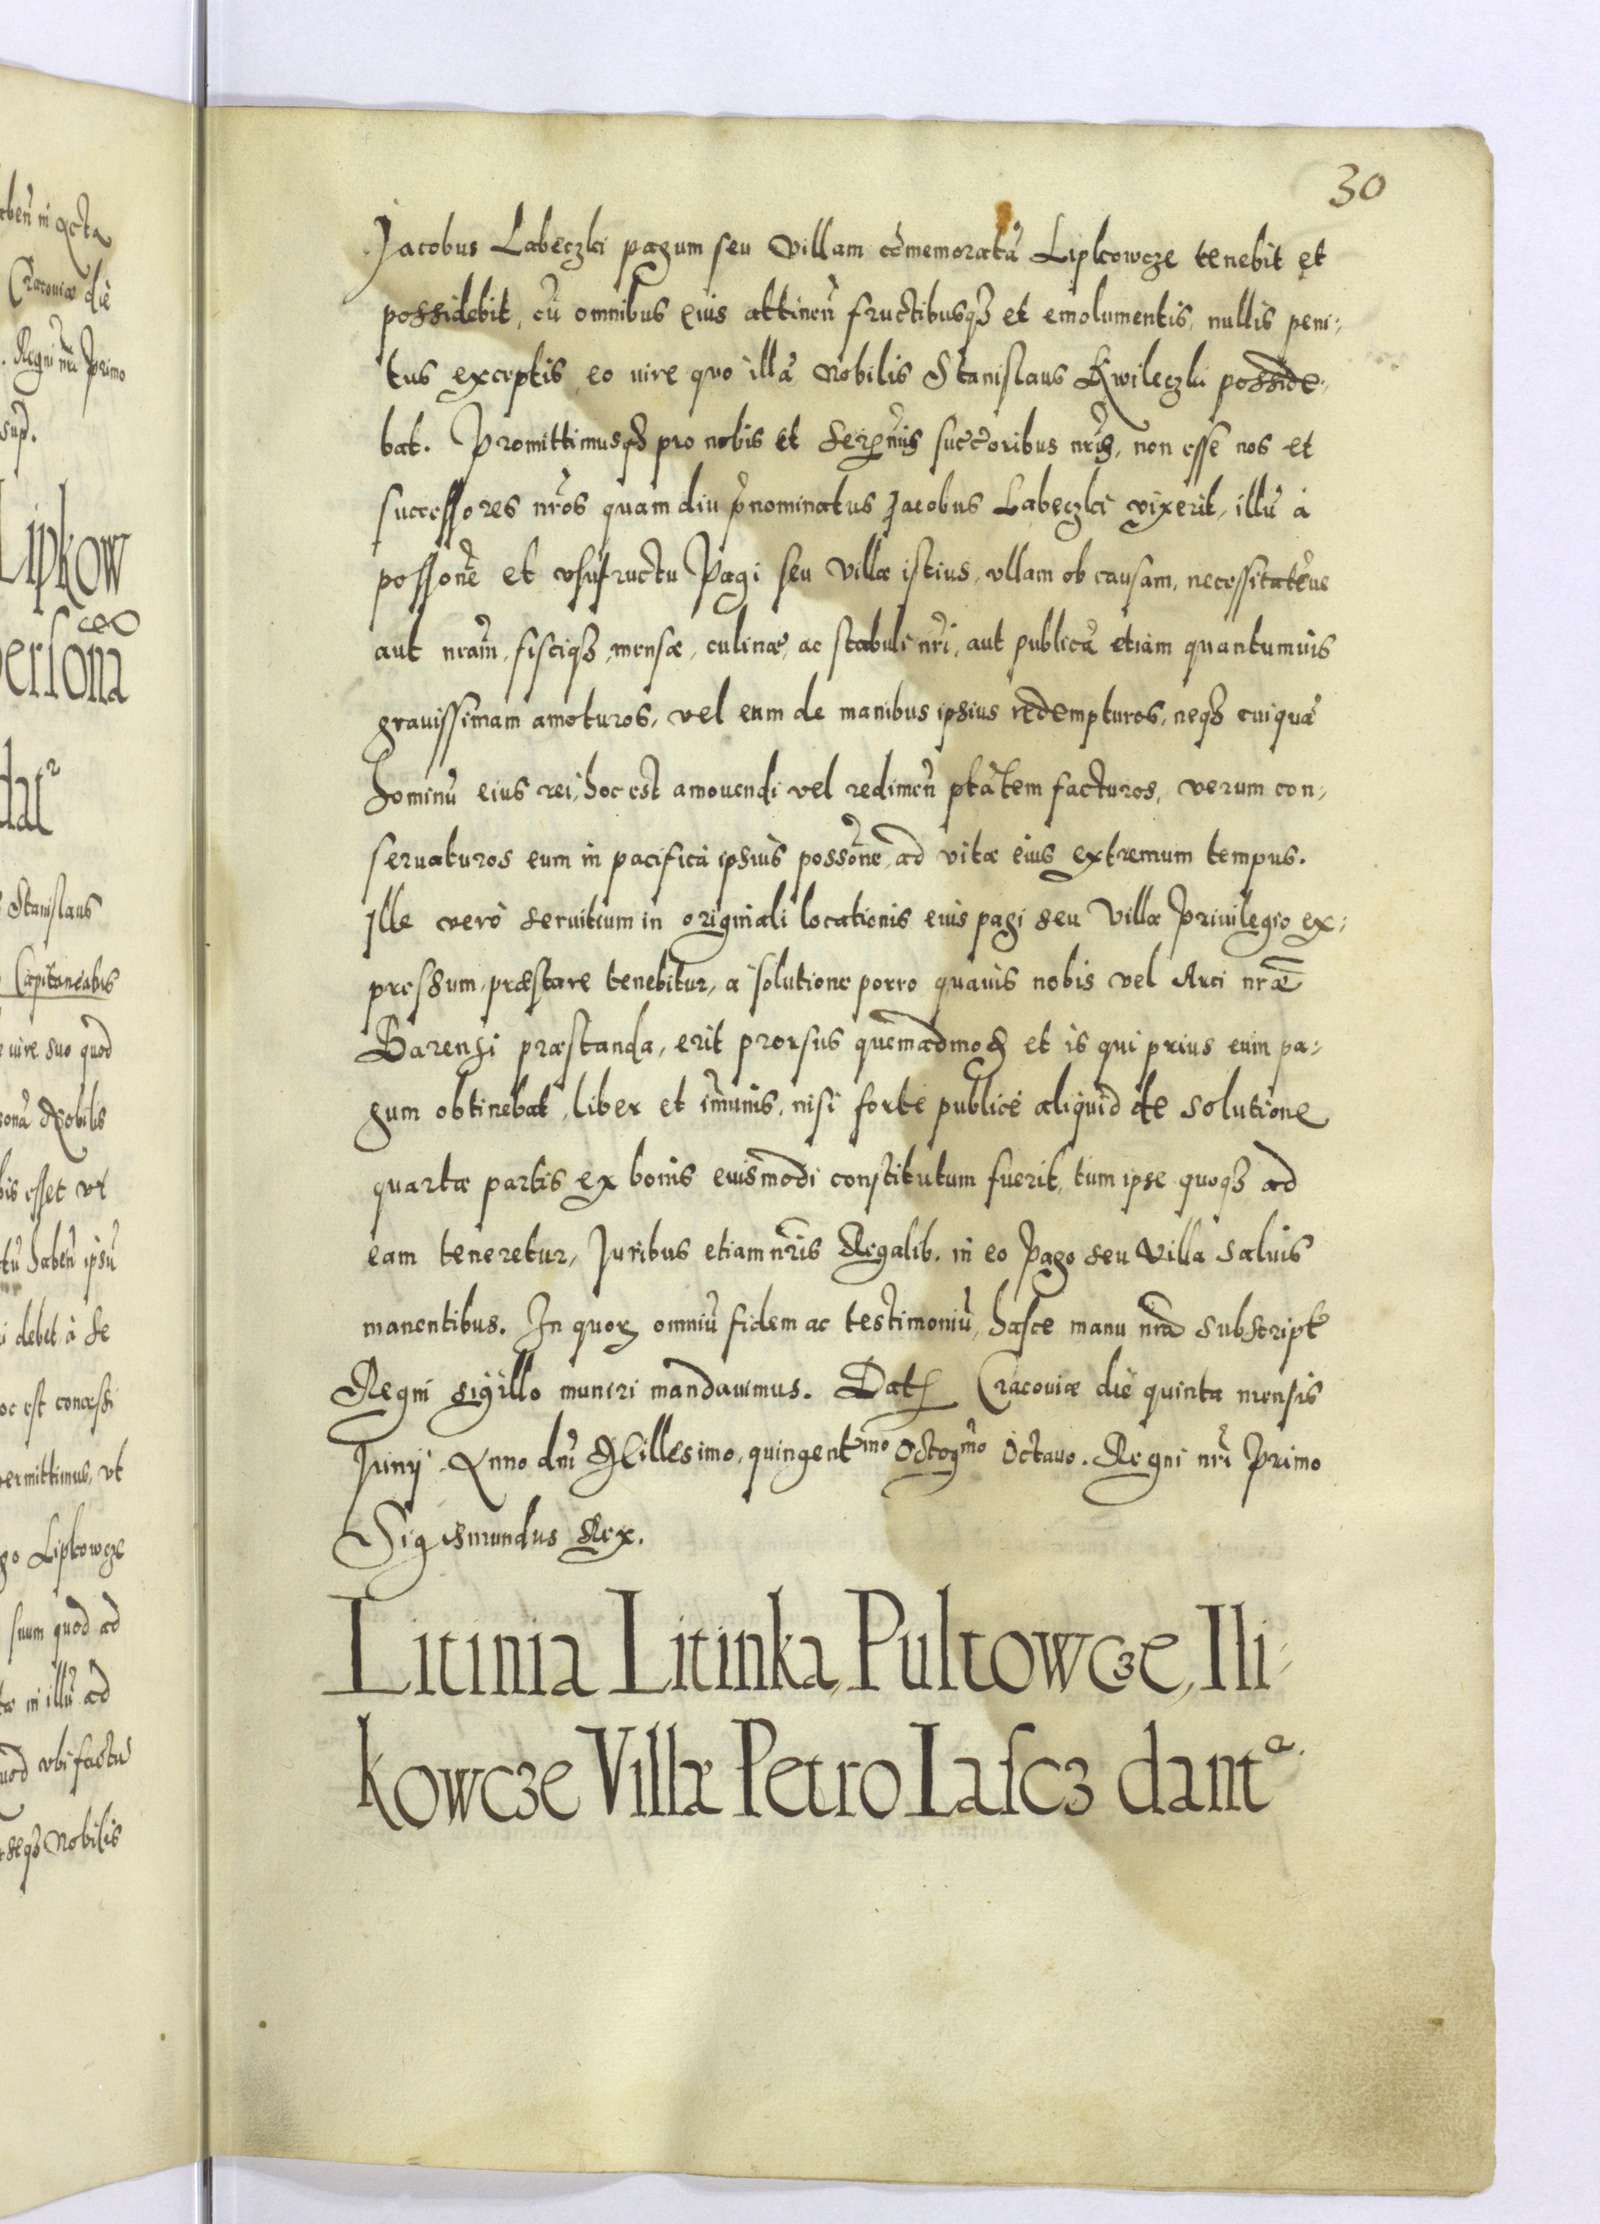 30
Jacobus Labeczki pagum seu villam cõmemoratã Lipkowcze tenebit et
possidebit, cũ omnibus eius attineñ fructibusq₃ et emolumentis, nullis peni-
tus exceptis, eo iure quo illã Nobilis Stanislaus Kwileczki posside-
bat. Promittimusq₃ pro nobis et Serẽnnis succoribus nr̃is, non esse nos et
successores nr̃os quam diu p̃nominatus Jacobus Labeczki vixerit, illũ à
possonẽ et vsufructu Pagi seu Villæ istius, vllam ob causam, necessitatẽue
aut nram̃, fisciq₃, mensæ, culinæ, ac stabuli nr̃i, aut publicã etiam quantumuis
grauissimam amoturos, vel eum de manibus ipsius redempturos, neq₃ cuiquã
hominũ eius rei, hoc est amouendi vel redimeñ ptãtem facturos, verum con-
seruaturos eum in pacifica ipsius possonẽ, ad vitæ eius extremum tempus.
Ille verò seruitium in originali locationis eius pagi seu Villæ Priuilegio ex-
pressum, præstare tenebitur, a solutione porro quauis nobis vel Arci nræ̃
Barensi præstanda, erit prorsus quemadmoḋ et is qui prius eum pa-
gum obtinebat, liber et im̃unis, nisi forte publicè aliquid de solutione
quartæ partis ex bonis euismodi constitutum fuerit, tum ipse quoq₃ ad
eam teneretur, Juribus etiam nr̃is Regalib. in eo Pago seu Villa saluis
manentibus. In quorꝫ omniũ fidem ac testimoniũ, hasce manu nrã subscript̃
Regni sigillo muniri mandauimus. Dat̃ Cracouiæ die quinta mensis
Junij. Anno dnĩ Millesimo, quingentmo Octogmo Octauo. Regni nr̃i Primo
Sigismundus Rex.
Litinia Litinka, Pultowcze, Ili-
kowcze Villæ Petro Lascz dantr.